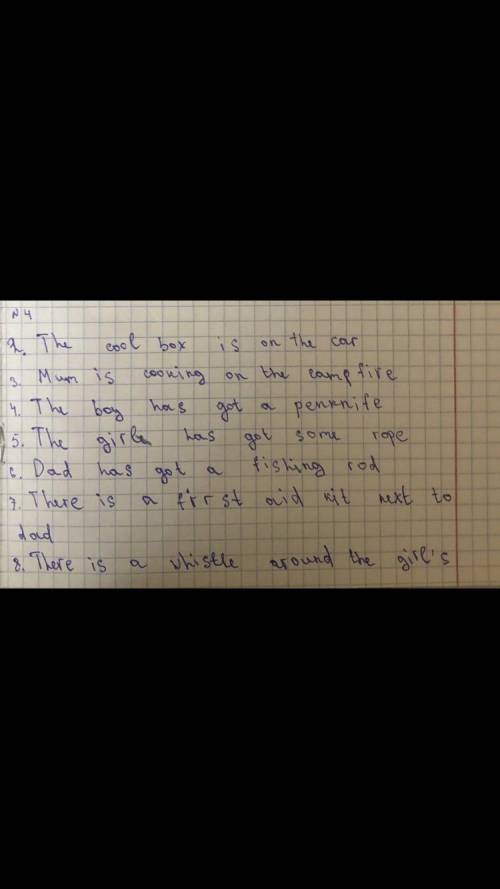 № 4
2. The cool box is on the car
3. Mum is cooking on the campfire
4. The boy has got a penknife
5. The girl has got some rope
6. Dad has got a fishing rod
7. There is a first aid kit next to
dad
8. There is a whistle around the girl's